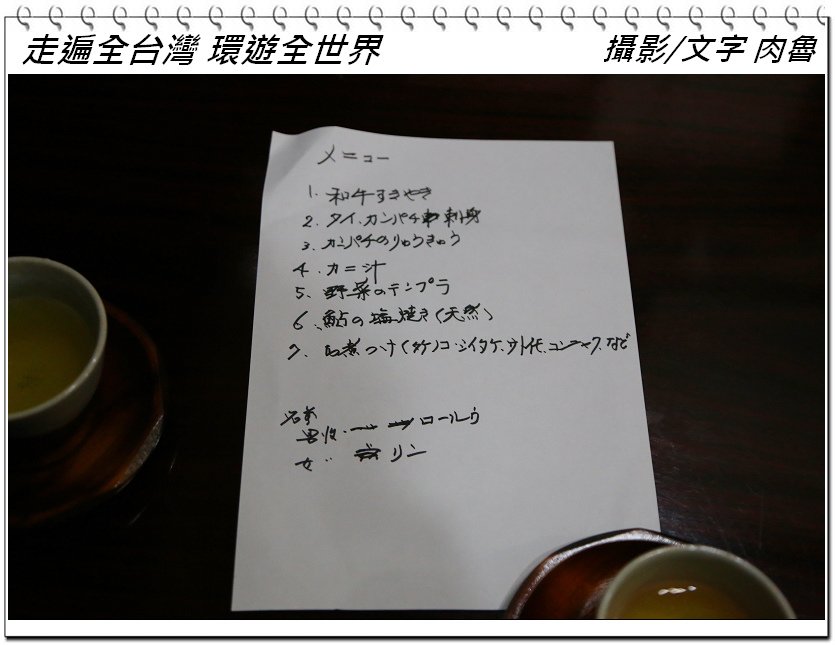 走遍全台灣 環遊全世界
攝影/文字 肉魯
メニュー
1. 和牛すきやき
2. タイ、カンパチ 刺身
3. カンパチのりゅうきゅう
4. カニ汁
5. 野菜のテンプラ
6. 鮎の塩焼き(天然)
7. 煮つけ(タケノコ、シイタケ、コンニャクなど
名前
男性 ロールウ
女 リン